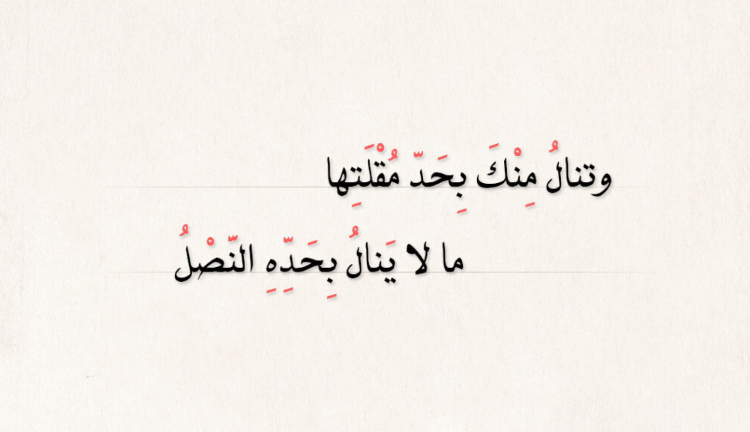 وتنالُ مِنْكَ بِحَدّ مُقْلَتِها
ما لا يَنالُ بِحَدِّهِ النّصْلُ